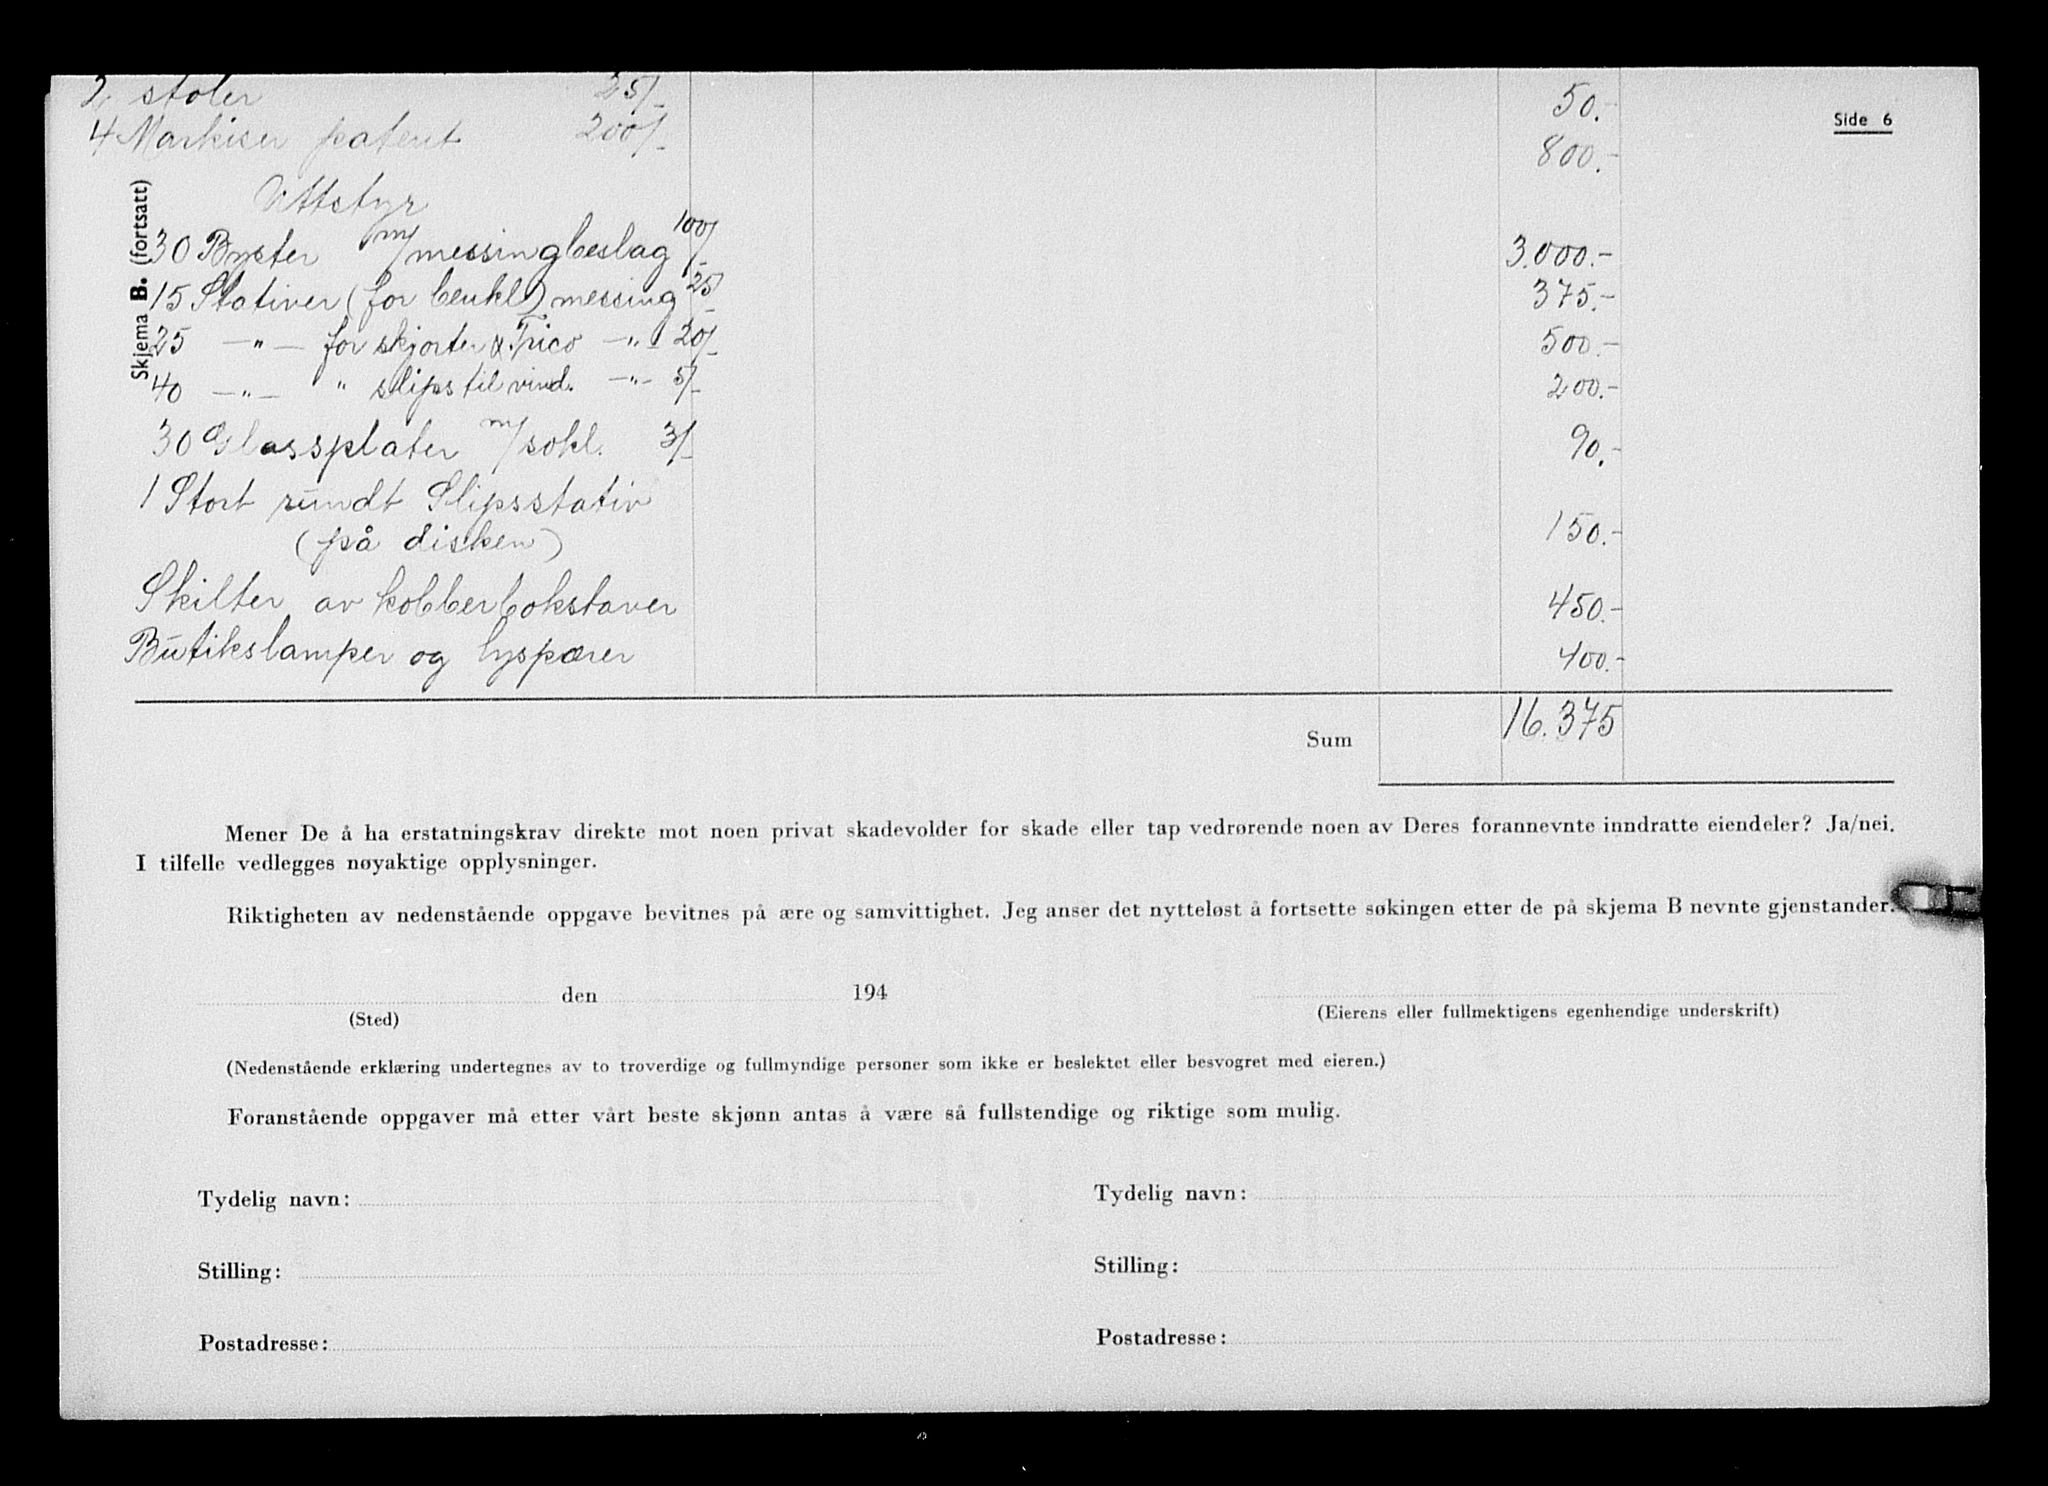 2 stoler 25/- 50.-
Side 6
4 Markiser patent 200/- 800.-
Skjema B. (fortsatt)
Uttstyr
30 Byster m/messingbeslag 100/- 3.000.-
15 Stativer (for benkl.) messing 25/- 375.-
25 -"- for skjorter & Trico -"- 20/- 500.-
40 -"- " slips til vind. -"- 5/- 200.-
30 Glassplater m/sokl. 3/- 90.-
1 Stort rundt Slipsstativ
(på disken) 150.-
Skilter av kobberbokstaver 450.-
Butikslamper og lyspærer 400.-
Sum 16.375
Mener De å ha erstatningskrav direkte mot noen privat skadevolder for skade eller tap vedrørende noen av Deres forannevnte inndratte eiendeler? Ja/nei.
I tilfelle vedlegges nøyaktige opplysninger.
Riktigheten av nedenstående oppgave bevitnes på ære og samvittighet. Jeg anser det nytteløst å fortsette søkingen etter de på skjema B nevnte gjenstander.
den 194
(Sted) (Eierens eller fullmektigens egenhendige underskrift)
(Nedenstående erklæring undertegnes av to troverdige og fullmyndige personer som ikke er beslektet eller besvogret med eieren.)
Foranstående oppgaver må etter vårt beste skjønn antas å være så fullstendige og riktige som mulig.
Tydelig navn: Tydelig navn:
Stilling: Stilling:
Postadresse: Postadresse: